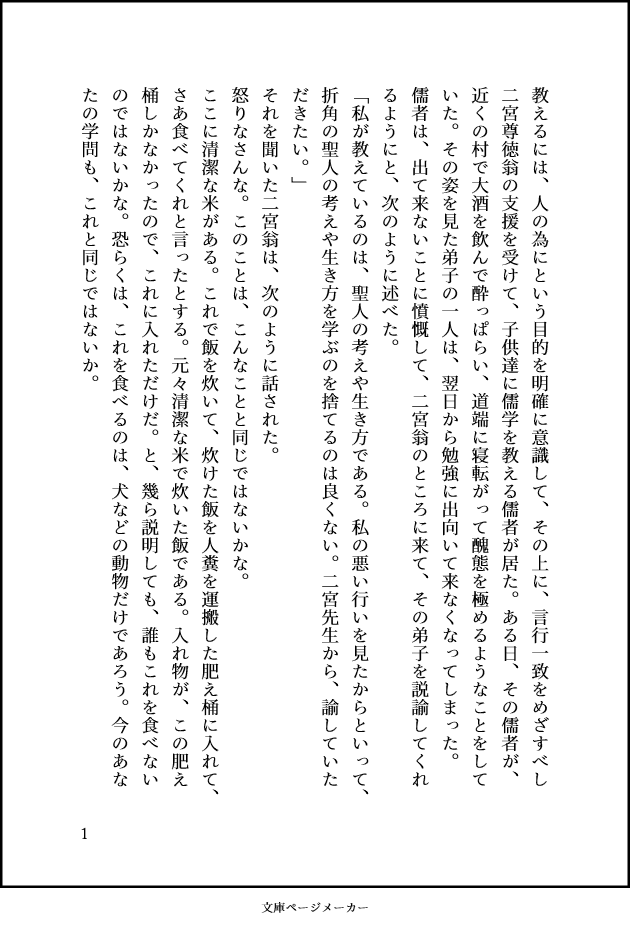 教えるには、人の為にという目的を明確に意識して、その上に、言行一致をめざすべし
二宮尊徳翁の支援を受けて、子供達に儒学を教える儒者が居た。ある日、その儒者が、
近くの村で大酒を飲んで酔っぱらい、道端に寝転がって醜態を極めるようなことをして
いた。その姿を見た弟子の一人は、翌日から勉強に出向いて来なくなってしまった。
儒者は、出て来ないことに憤慨して、二宮翁のところに来て、その弟子を説諭してくれ
るようにと、次のように述べた。
「私が教えているのは、聖人の考えや生き方である。私の悪い行いを見たからといって、
折角の聖人の考えや生き方を学ぶのを捨てるのは良くない。二宮先生から、諭していた
だきたい。」
それを聞いた二宮翁は、次のように話された。
怒りなさんな。このことは、こんなことと同じではないかな。
ここに清潔な米がある。これで飯を炊いて、炊けた飯を人糞を運搬した肥え桶に入れて、
さあ食べてくれと言ったとする。元々清潔な米で炊いた飯である。入れ物が、この肥え
桶しかなかったので、これに入れただけだ。と、幾ら説明しても、誰もこれを食べない
のではないかな。恐らくは、これを食べるのは、犬などの動物だけであろう。今のあな
たの学問も、これと同じではないか。
1
文庫ページメーカー